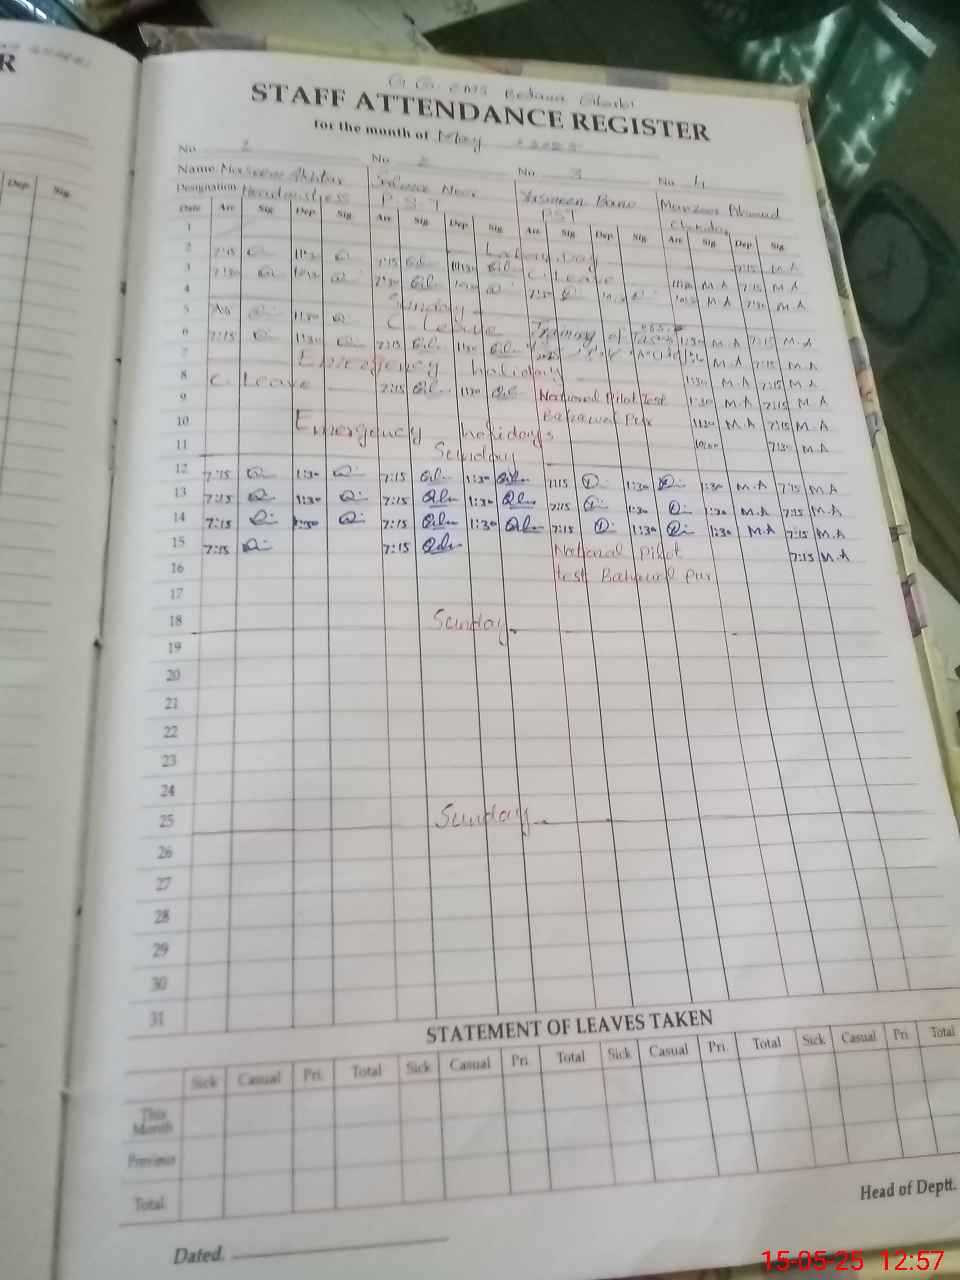 R
STAFF ATTENDANCE REGISTER
for the month of May 2025
No 1 No 2 No 3 No 4
Name Nasreem Akhtar Yasmeen Bano Manzoor Ahmad
Designation Headmistress P.S.T PST
Date Arr Sig Dep. Sig. Arr. Sig. Dep. Sig. Arr. Sig. Dep. Sig. Arr. Sig. Dep. Sig.
Dep. Sig.
1 Labour Day 7:15 M.A
2 7:15 11:30 7:15 11:30 C. Leave 11:30 M.A 7:15 M.A
3 7:30 10:30 7:30 10:30 7:30 10:30 10:30 M.A 7:30 M.A
4 Sunday
5 1:30 C Leave Training of 1:30 M.A 7:15 M.A
6 7:15 1:30 7:15 1:30 M.A 7:15 M.A
7 Emergency holiday 1:30 M.A 7:15 M.A
8 C. Leave 7:15 1:30 National Pilot test 1:30 M.A 7:15 M.A
9 Bahawal Pur 11:30 M.A 7:15 M.A
10 Emergency holidays 10:00 7:30 M.A
11 Sunday
12 7:15 1:30 7:15 1:30 7:15 1:30 1:30 M.A 7:15 M.A
13 7:15 1:30 7:15 1:30 7:15 1:30 1:30 M.A 7:15 M.A
14 7:15 1:30 7:15 1:30 7:15 1:30 1:30 M.A 7:15 M.A
15 7:15 7:15 National pilot 7:15 M.A
16 test Bahawal pur
17
18 Sunday
19
20
21
22
23
24
25 Sunday
26
27
28
29
30
31
STATEMENT OF LEAVES TAKEN
Sick Casual Pri. Total Sick Casual Pri. Total Sick Casual Pri. Total Sick Casual Pri. Total
This Month
Previous
Total
Head of Deptt.
Dated.
15-05-25 12:57